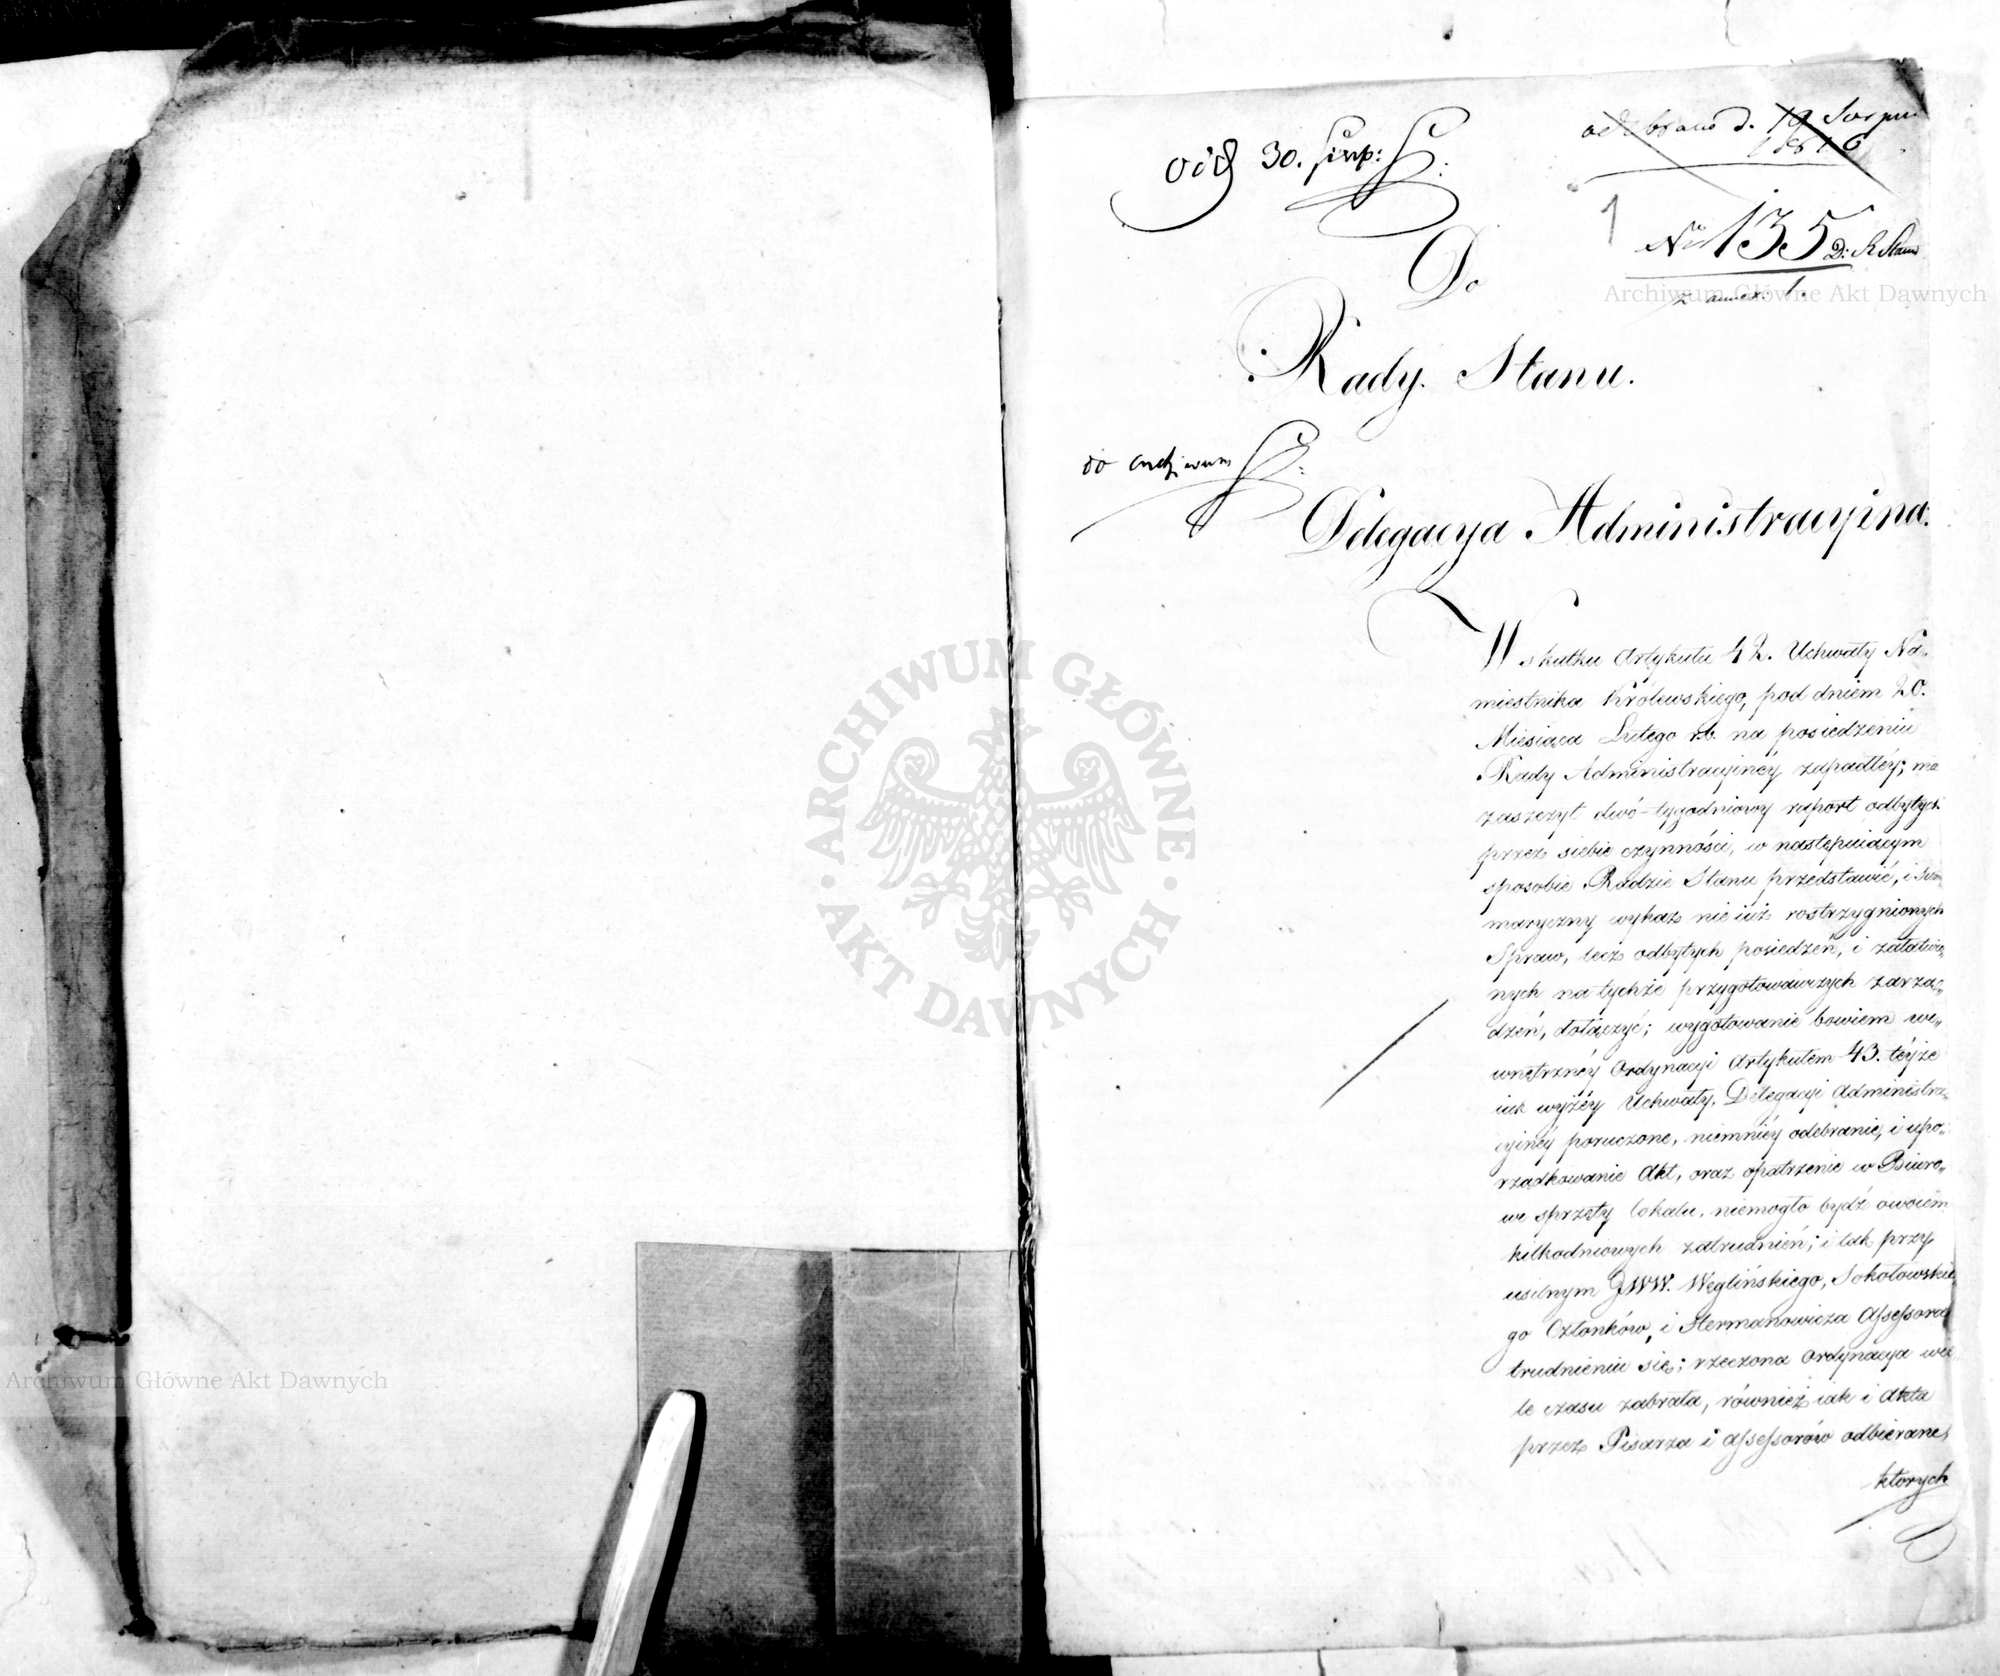 odebrano d. 19 Sierpn
1816
od 30. Sierp:
1
No 135 D: R. Stanu
z annex. 1.
Do
Rady Stanu.
do archiwum
Delegacya Administracyina.
W skutku Artykułu 42. Uchwały Na„
miestnika Królewskiego, pod dniem 20.
Miesiąca Lutego r.b. na posiedzeniu
Rady Administracyinéy zapadłéy; ma
zaszczyt dwó-tygodniowy raport odbytych
przez siebie czynności, w następuiącym
sposobie Radzie Stanu przedstawić, i Sum„
maryczny wykaz nie iuż rostrzygnionych
Spraw, lecz odbytych posiedzeń, i załatwio„
nych na tychże przygotowawczych zarzą„
dzeń, dołączyć; wygotowanie bowiem we„
wnętrznéy Ordynacyi Artykułem 43. téyże
iak wyżéy Uchwały, Delegacyi Administra„
cyinéy poruczone, niemniéy odebranie, i upo„
rządkowanie Akt, oraz opatrzenie w Biuro„
we sprzęty lokalu, niemogło bydź owocem
kilkodniowych zatrudnień; i tak przy
usilnym JWW. Węglińskiego, Sokołowskie„
go Członków, i Hermanowicza Assessora
trudnieniu się; rzeczona Ordynacya wie
le czasu zabrała, również iak i Akta
przez Pisarza i Assessorów odbierane,
których
Archiwum Główne Akt Dawnych
ARCHIWUM GŁÓWNE · AKT DAWNYCH ·
Archiwum Główne Akt Dawnych